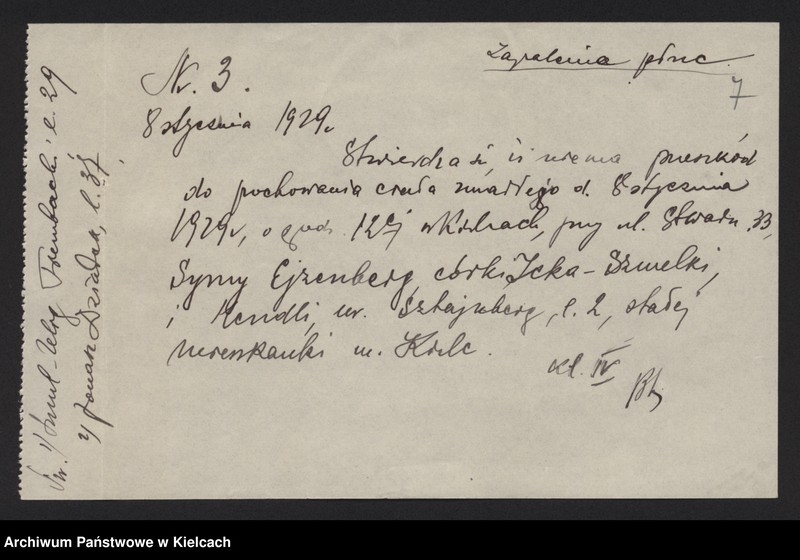 Zapalenie płuc.
7
Nr. 3.
8 stycznia 1929 r.
Stwierdza się, iż niema przeszkód
do pochowania ciała zmarłego d. 8 stycznia
1929 r, o godz. 12ej w Kielcach, przy ul.
Symy Ejzenberg, córki Icka-Szmelki,
i Hendli, ur. Sztajnberg, l. 2, stałej
mieszkanki m. Kielc.
kl. IV
Św. 1/ Szmul-Zelig l. 29
2/ Jonasz Działek, l. 37,
Archiwum Państwowe w Kielcach